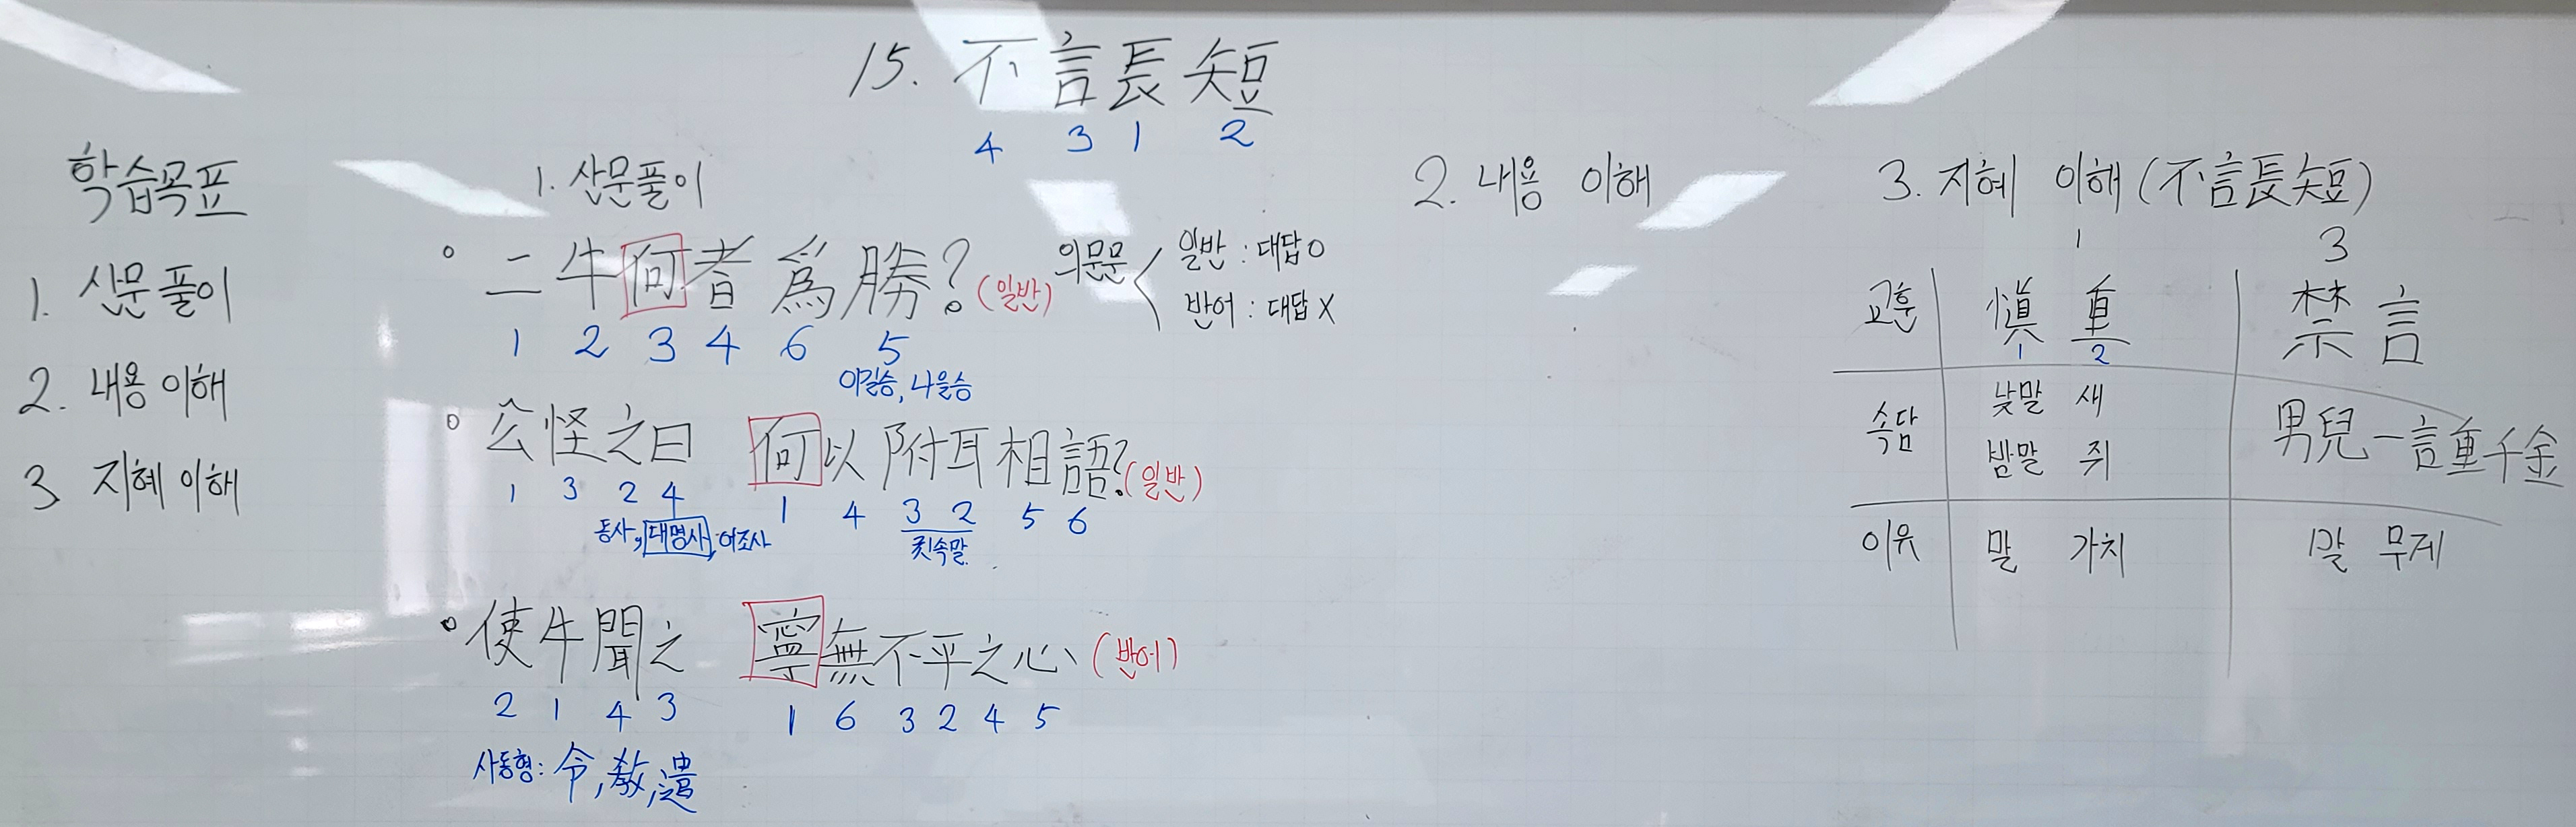 15. 不言長短
4 3 1 2
학습목표
1. 산문 풀이
2. 내용 이해
3 지혜 이해
1. 산문풀이
二牛何者爲勝? (일반)
1 2 3 4 6 5
이길승, 나을승
의문문
일반 : 대답O
반어 : 대답X
公怪之曰 何以附耳相語? (일반)
1 3 2 4 1 4 3 2 5 6
동사, 대명사, 어조사
귓속말
使牛聞之 寧無不平之心 (반어)
2 1 4 3 1 6 3 2 4 5
사동형: 令, 敎, 遣
2. 내용 이해
3. 지혜 이해 (不言長短)
1 3
교훈 愼重 禁言
1 2
속담 낮말 새 男兒一言重千金
밤말 쥐
이유 말 가치 말 무게